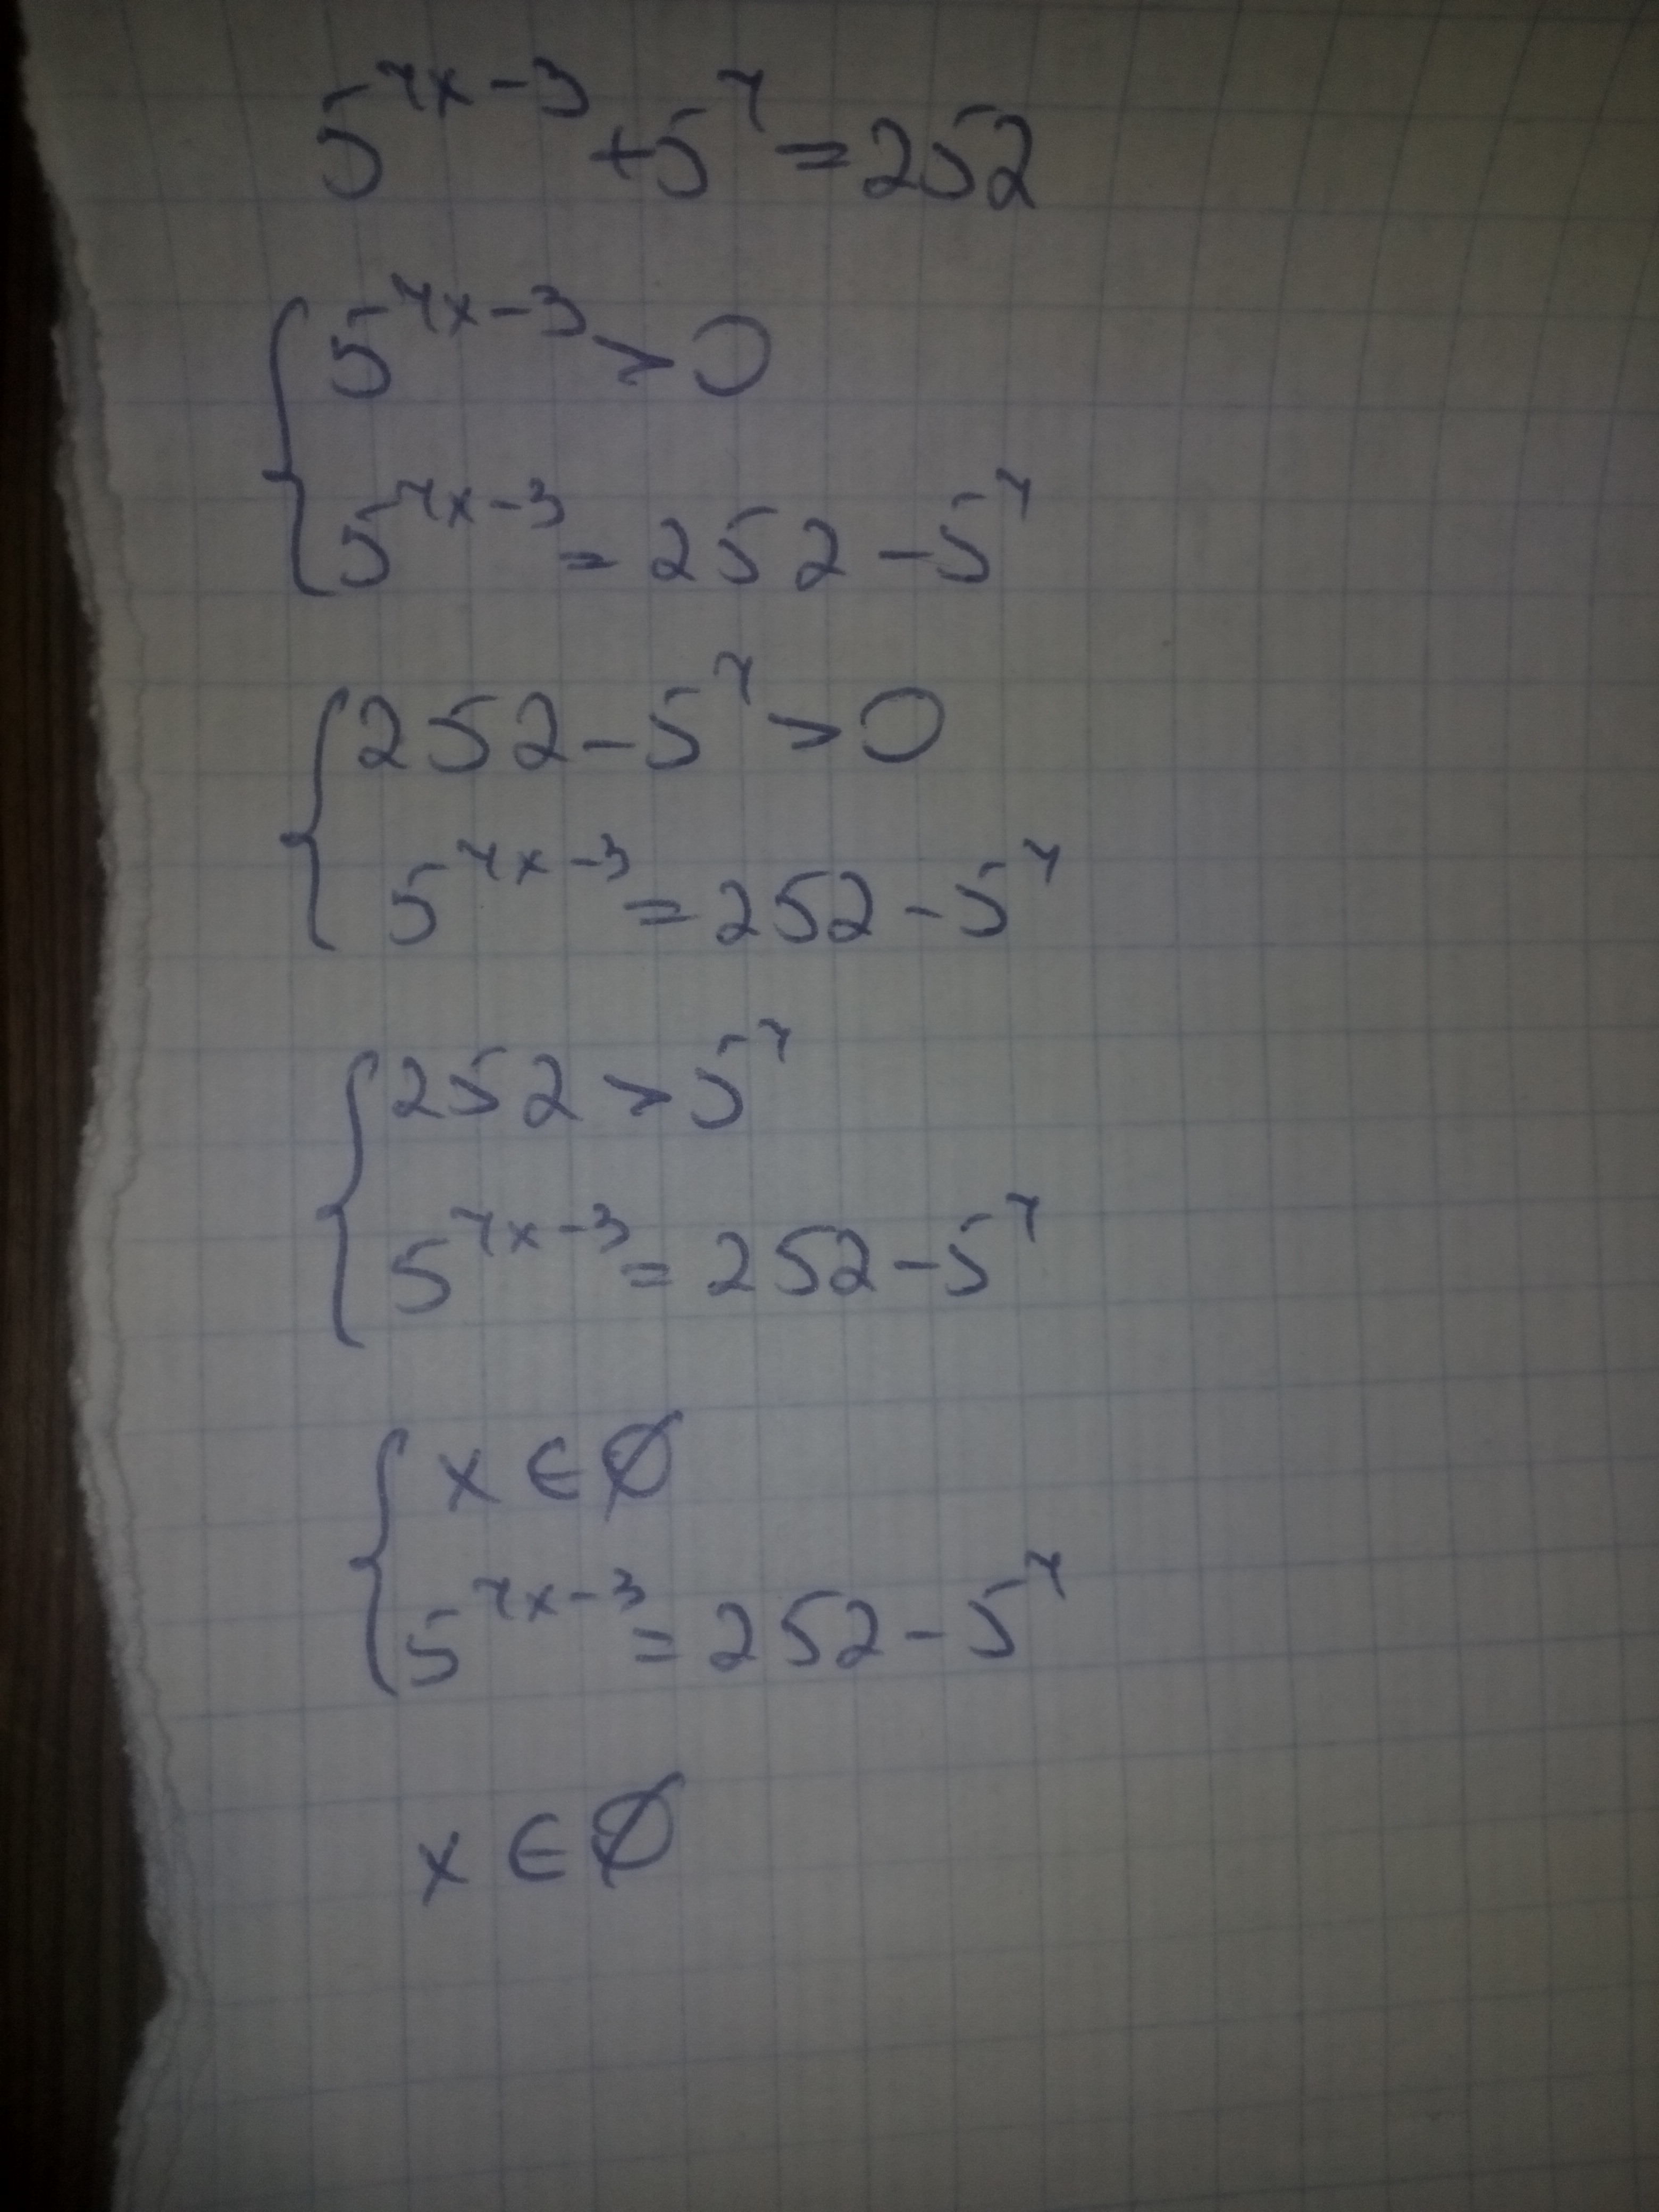 5^{7x-3}+5^7=252
{ 5^{7x-3}>0
5^{7x-3}=252-5^7
{ 252-5^7>0
5^{7x-3}=252-5^7
{ 252>5^7
5^{7x-3}=252-5^7
{ x∈∅
5^{7x-3}=252-5^7
x∈∅